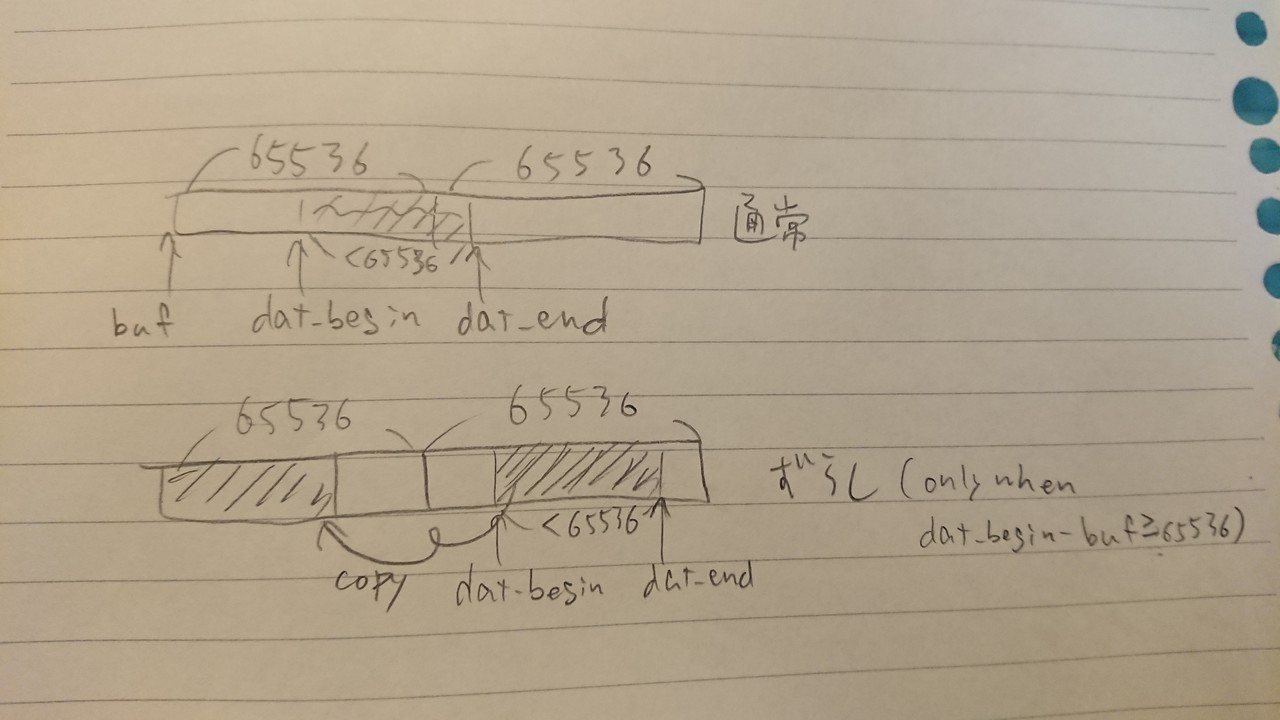 65536 65536
通常
<65536
buf dat_begin dat_end
65536 65536
ずらし (only when
dat_begin-buf≥65536)
<65536
copy dat-begin dat-end